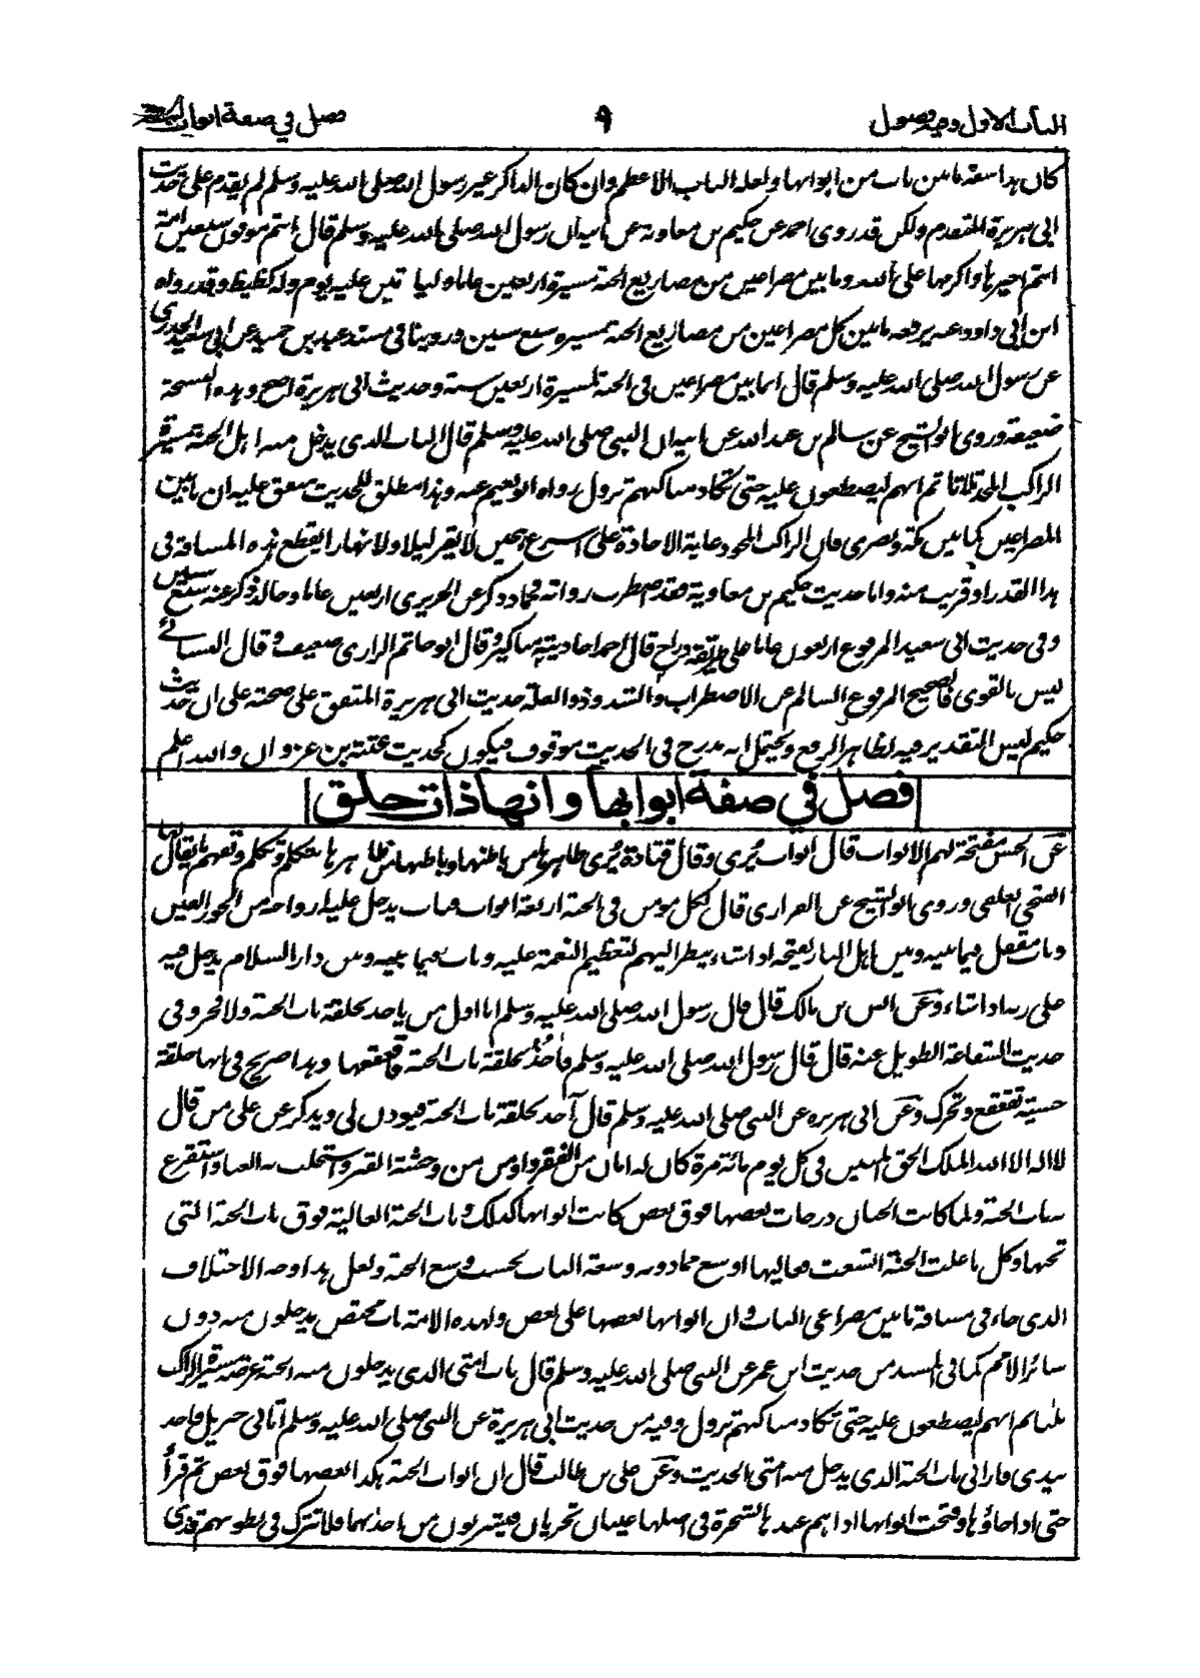 الباب الاول وفيه فصول
٩
فصل في صفة ابواب
كان هذا سعة ما بين باب من ابوابها ولعله الباب الاعظم وان كان الذاكر غير رسول الله صلى الله عليه وسلم لم يقدم على حديث
ابي هريرة المتقدم ولكن قد روى احمد عن حكيم بن معاوية عن ابيه ان رسول الله صلى الله عليه وسلم قال انتم موفون سبعين امة
انتم اخيرها واكرمها على الله وما بين مصراعين من مصاريع الجنة مسيرة اربعين عاما وليأتين عليه يوم وله كظيظ وقد رواه
ابن ابي داود عنه يرفعه ما بين كل مصراعين من مصاريع الجنة مسيرة سبع سنين وروينا في مسند عبد بن حميد عن ابي سعيد الخدري
عن رسول الله صلى الله عليه وسلم قال ان ما بين مصراعين في الجنة لمسيرة اربعين سنة وحديث ابي هريرة اصح وهذه النسخة
ضعيفة وروى ابو الشيخ عن سالم بن عبد الله عن ابيه ان النبي صلى الله عليه وسلم قال الباب الذي يدخل منه اهل الجنة مسيرة
الراكب المجد ثلاثا ثم انهم ليضطعون عليه حتى تكاد مناكبهم تزول رواه ابو نعيم عنه وهذا مطابق للحديث متفق عليه ان ما بين
المصراعين كما بين مكة وبصرى فان الراكب المجود غاية الاجادة على اسرع هجين لا يقر ليلا ولا نهارا يقطع هذه المسافة في
هذا القدر او قريب منه واما حديث حكيم بن معاوية فقد اضطرب رواته فحماد ذكر عن الجريري اربعين عاما وخالد ذكر عنه سبع سنين
وفي حديث ابي سعيد المرفوع اربعون عاما على طريقة دراج قال احمد احاديثه مناكير وقال ابو حاتم الرازي ضعيف وقال النسائے
ليس بالقوى فالصحيح المرفوع السالم عن الاضطراب والشذوذ والعلة حديث ابي هريرة المتفق على صحته على ان حديث
حكيم ليس التقدير فيه لظاهر الرفع ويحتمل انه مدرج في الحديث موقوف فيكون كحديث عتبة بن غزوان والله اعلم
فصل في صفة ابوابها وانها ذات حلق
عن الحسن مفتحة لهم الابواب قال ابواب يُرى وقال قتادة يُرى ظاهرها من باطنها وباطنها من ظاهرها تتكلم وتكلم وتفهم ما يقال لها
انفتحي انغلقي وروى ابو الشيخ عن الفزاري قال لكل مومن في الجنة اربعة ابواب فباب يدخل عليه زواره من الحور العين
وباب مقفل فيما بينه وبين اهل النار يفتحه اذا شاء ينظر اليهم لتعظيم النعمة عليه وباب فيما بينه وبين دار السلام يدخل فيه
على ربه اذا شاء وعن انس بن مالك قال قال رسول الله صلى الله عليه وسلم انا اول من ياخذ بحلقة باب الجنة ولا فخر وفي
حديث الشفاعة الطويل عنه قال قال رسول الله صلى الله عليه وسلم فآخذ بحلقة باب الجنة فاقعقعها وهذا صريح في انها حلقة
حسية تقعقع وتحرك وعن ابي هريرة عن النبي صلى الله عليه وسلم قال آخذ بحلقة باب الجنة فيوذن لي ويذكر عن علي من قال
لا اله الا الله الملك الحق المبين في كل يوم مائة مرة كان له امان من الفقر واومن من وحشة القبر واستجلب به الغنا واستقرع
به باب الجنة ولما كانت الجنان درجات بعضها فوق بعض كانت ابوابها كذلك وباب الجنة العالية فوق باب الجنة التي
تحتها وكل ما علت الجنة اتسعت فعاليها اوسع مما دونه وسعة الباب بحسب وسع الجنة ولعل هذا وجه الاختلاف
الذي جاء في مسافة ما بين مصراعي الباب وان ابوابها بعضها على بعض ولهذه الامة باب مختص يدخلون منه دون
سائر الامم كما في المسند من حديث ابن عمر عن النبي صلى الله عليه وسلم قال باب امتي الذي يدخلون منه الجنة عرضه مسيرة الراكب
ثلثا ثم انهم ليضطعون عليه حتى تكاد مناكبهم تزول وفيه من حديث ابي هريرة عن النبي صلى الله عليه وسلم اتاني جبريل فاخذ
بيدي فاراني باب الجنة الذي يدخل منه امتي الحديث وعن علي بن ابي طالب قال ان ابواب الجنة هكذا بعضها فوق بعض ثم قرأ
حتى اذا جاؤها وفتحت ابوابها اذا هم عندها بشجرة في اصلها عينان تجريان فيشربون من احداهما فلا تترك في بطونهم قذى